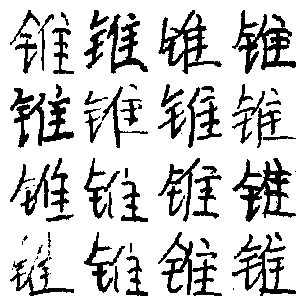 锥锥锥锥
锥锥锥锥
锥锥锥锥
锥锥锥锥